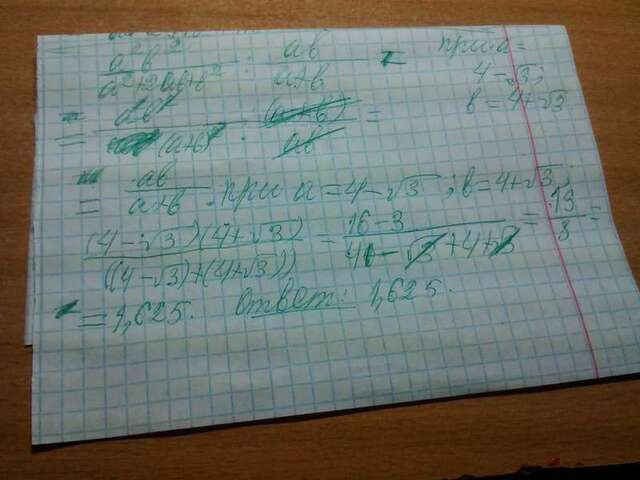 a²b² / a²+2ab+b² : ab / a+b = при a=
4-√3;
b=4+√3
= ab / (a+b) : (a+b) / ab =
= ab / a+b при a=4-√3; b=4+√3;
(4-√3)(4+√3) / ((4-√3)+(4+√3)) = 16-3 / 4-√3+4+√3 = 13 / 8 =
= 1,625. Ответ: 1,625.